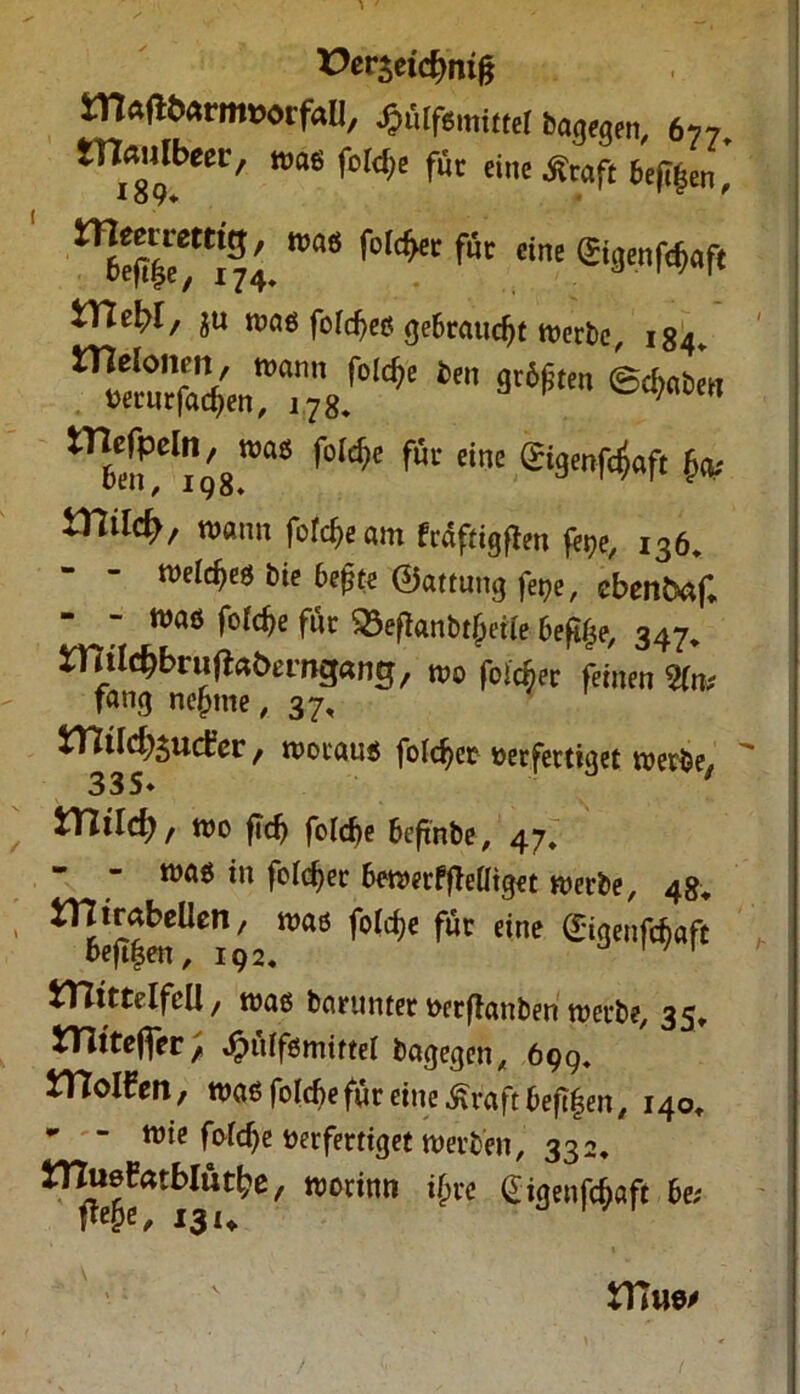 Verzeichniß
Mastdarmvorfall, Hülfsmittel dagegen, 677.
Maulbeer, was solche für eine Kraft besitzen,
189.
Meerrettig, was solcher für eine Eigenschaft
besitze, 174.
Mehl, zu was solches gebraucht werde, 184.
Melonen, wann solche den größten Schaden
verursachen, 178.
Mespeln, was solche für eine Eigenschaft ha-
ben, 198.
Milch, wann solche am kräftigsten seye, 136.
- - welches die beßte Gattung seye, ebendas.
- - was solche für Bestandtheile besitze, 347.
Milchbrustaderngang, wo solcher seinen An-
fang nehme, 37.
Milchzucker, woraus solcher verfertiget werde,
335.
Milch, wo sich solche befinde, 47.
- - was in solcher bewerkstelliget werde, 48.
Mirabellen, was solche für eine Eigenschaft
besitzen, 192.
Mittelfell, was darunter verstanden werde, 35.
Mitesser, Hülfsmittel dagegen, 699.
Molken, was solche für eine Kraft besitzen, 140.
- - wie solche verfertiget werden, 332.
Muskatblüthe, worinn ihre Eigenschaft be-
stehe, 131.
Mus-